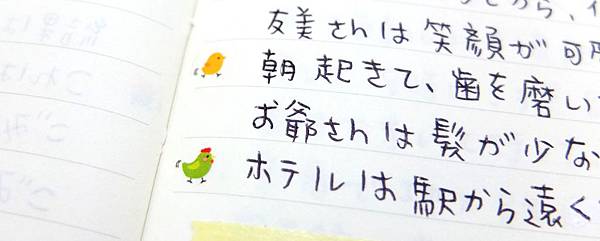 から、
友美さんは笑顔が可
朝起きて、歯を磨い
お爺さんは髪が少な
ホテルは駅から遠く